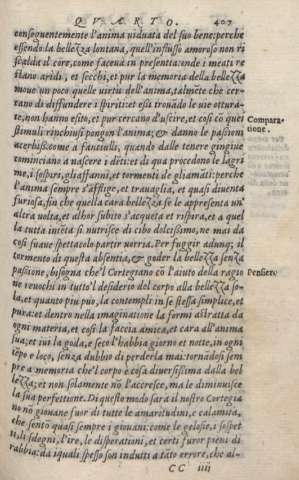 QVARTO. 407
conseguentemente l'anima viduata del suo bene: perche
essendo la bellezza lontana, quell'influsso amoroso non ri
scalda il core, come faceua in presentia: onde i meati re
stano aridi, et secchi, et pur la memoria della bellezza
moue un poco quelle uirtù dell'anima, talmẽte che cer-
cano di diffundere i spiriti: et essi trouãdo le uie ottura-
te, non hanno esito, et pur cercano d'uscire, et cosi cõ quei
stimuli rinchiusi pongon l'anima; & danno le passioni
acerbiss. come a fanciulli, quando dalle tenere gingiue
cominciano a nascere i dẽti: et di qua procedono le lagri
me, i sospiri, gli affanni, et tormenti de gli amãti: perche
l'anima sempre s'affligge, et trauaglia, et quasi diuenta
furiosa, fin che quella cara bellezza se le appresenta un'
altra uolta, et alhor subito s'acqueta et respira, et a quel
la tutta intẽta si nutrisce di cibo dolcissimo, ne mai da
cosi suaue spettacolo partir uorria. Per fuggir adunq; il
tormento di questa absentia, & goder la bellezza senza
passione, bisogna che'l Cortegiano cõ l'aiuto della ragio
ne reuochi in tutto'l desiderio del corpo alla bellezza so-
la, et quanto piu può, la contempli in se stessa simplice, et
pura: et dentro nella imaginatione la formi astratta da
ogni materia, et cosi la faccia amica, et cara all'anima
sua; et iui la goda, e seco l'habbia giorno et notte, in ogni
tẽpo e loco, senza dubbio di perderla mai: tornãdosi sem
pre a memoria che'l corpo è cosa diuersissima dalla bel
lezza; et non solamente nõ l'accresce, ma le diminuisce
la sua perfettione. Di questo modo sarà il nostro Cortegia
no nõ giouane fuor di tutte le amaritudini, e calamità,
che sentõ quasi sempre i giouani: come le gelosie, i sospet
ti, li sdegni, l'ire, le disperationi, et certi furor pieni di
rabbia: da i quali spesso son indutti a tãto errore, che al-
CC iiii
Compara
tione.
Pensiero